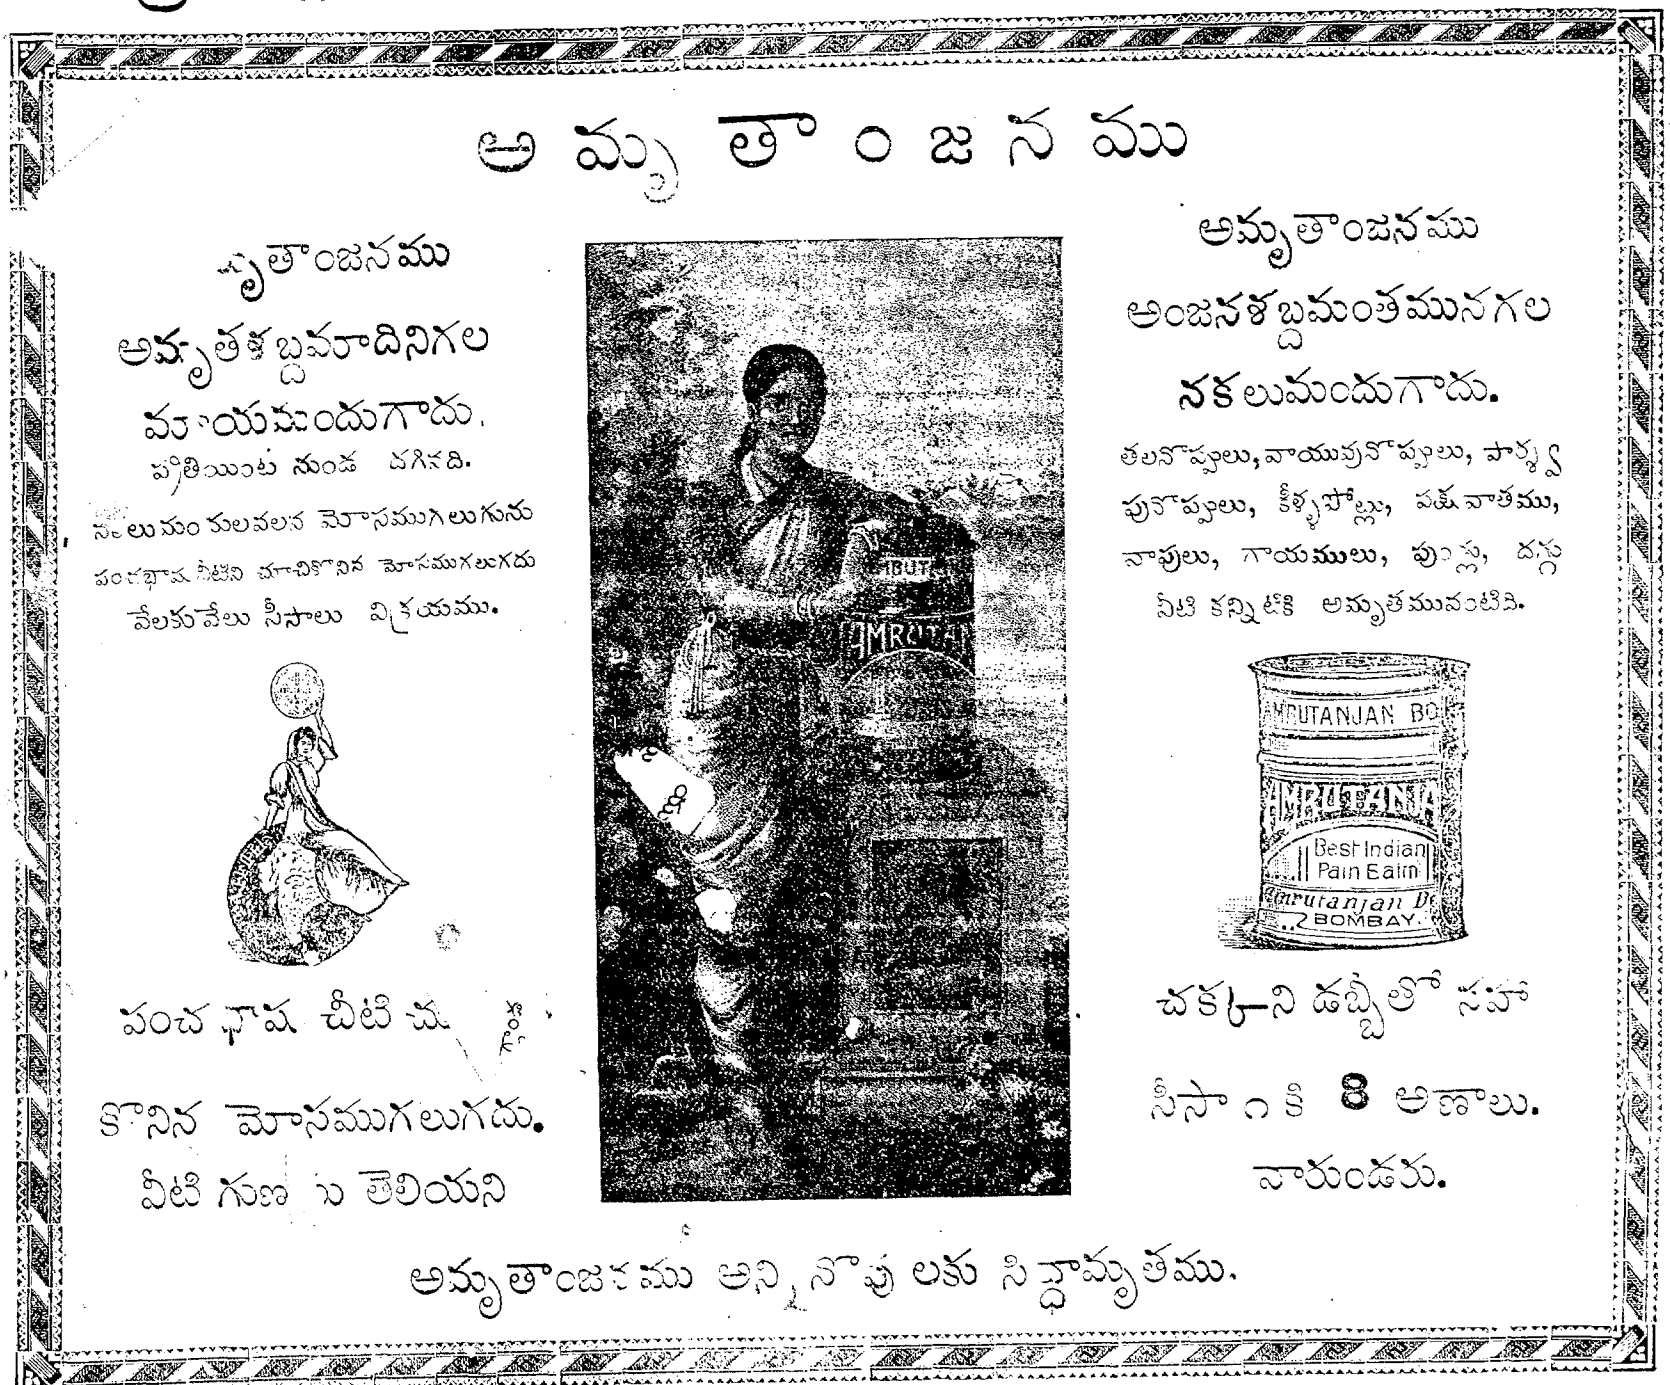 అమృతాంజనము
అమృతశబ్దమాదినిగల
మాయమందుగాదు.
ప్రతియింట నుండ దగినది.
మోసముగలుగును
మోసముగలుగదు
వేలకువేలు సీసాలు విక్రయము.
పంచభాష చీటి
కొనిన మోసముగలుగదు.
వీటి తెలియని
AMRUTAN
అమృతాంజనము
అంజనశబ్దమంతమునగల
నకలుమందుగాదు.
తలనొప్పులు, వాయువునొప్పులు, పార్శ్వ
పునొప్పులు, కీళ్ళపోట్లు, పక్షవాతము,
వాపులు, గాయములు, దగ్గు
వీటి కన్నిటికి అమృతమువంటిది.
AMRUTANJAN BO
AMRUTANJA
Best Indian
Pain Balm
Amrutanjan D
BOMBAY.
చక్కని డబ్బీతో సహా
సీసా ౧ కి 8 అణాలు.
వారుండరు.
అమృతాంజనము అన్ని నొప్పులకు సిద్ధామృతము.